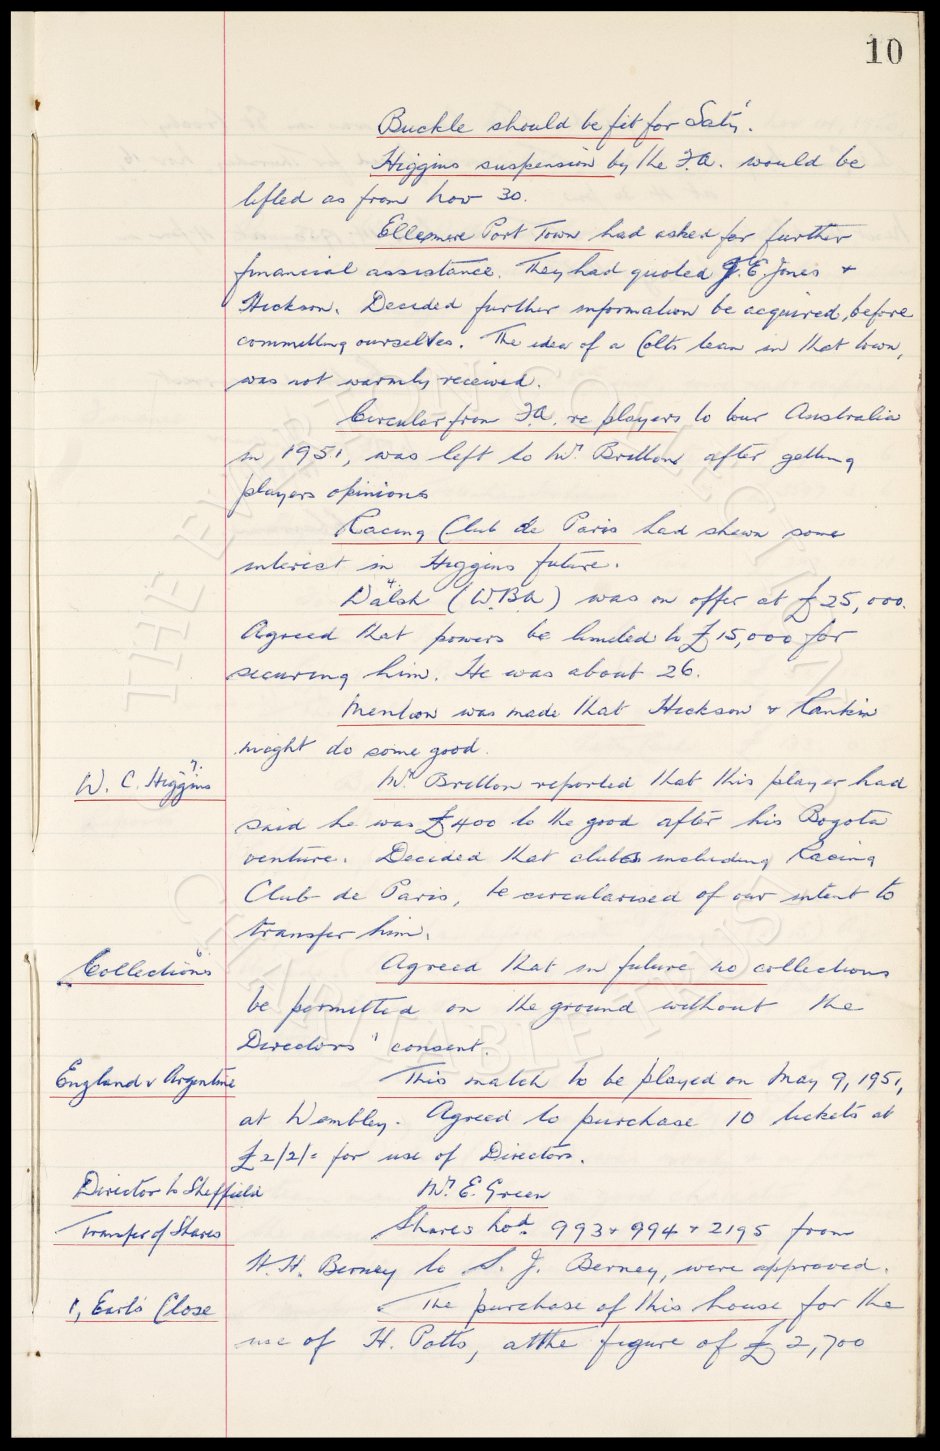 10
Buckle should be fit for Saty.
Higgins suspension by the F.A. would be
lifted as from Nov 30.
Ellesmere Port Town had asked for further
financial assistance. They had quoted J.E. Jones &
Hickson. Decided further information be acquired, before
committing ourselves. The idea of a Colts team in that town,
was not warmly received.
Circular from F.A. re players to tour Australia
in 1951, was left to Mr. Britton after getting
players opinions
Racing Club de Paris had shewn some
interest in Higgins future.
Walsh (W.B.A) was on offer at £25,000.
Agreed that powers be limited to £15,000 for
securing him. He was about 26.
Mention was made that Hickson & Rankin
might do some good.
W. C. Higgins Mr. Britton reported that this player had
said he was £400 to the good after his Bogota
venture. Decided that clubs including Racing
Club de Paris, be circularised of our intent to
transfer him.
Collections Agreed that in future no collections
be permitted on the ground without the
Directors' consent.
England v Argentine This match to be played on May 9, 1951,
at Wembley. Agreed to purchase 10 tickets at
£2/2/= for use of Directors.
Director to Sheffield Mr. E. Green
Transfer of Shares Shares Nod. 993 & 994 & 2195 from
H. H. Berney to S. J. Berney, were approved.
1, Earls Close The purchase of this house for the
use of H. Potts, at the figure of £2,700
THE EVERTON COLLECTION
CHARITABLE TRUST